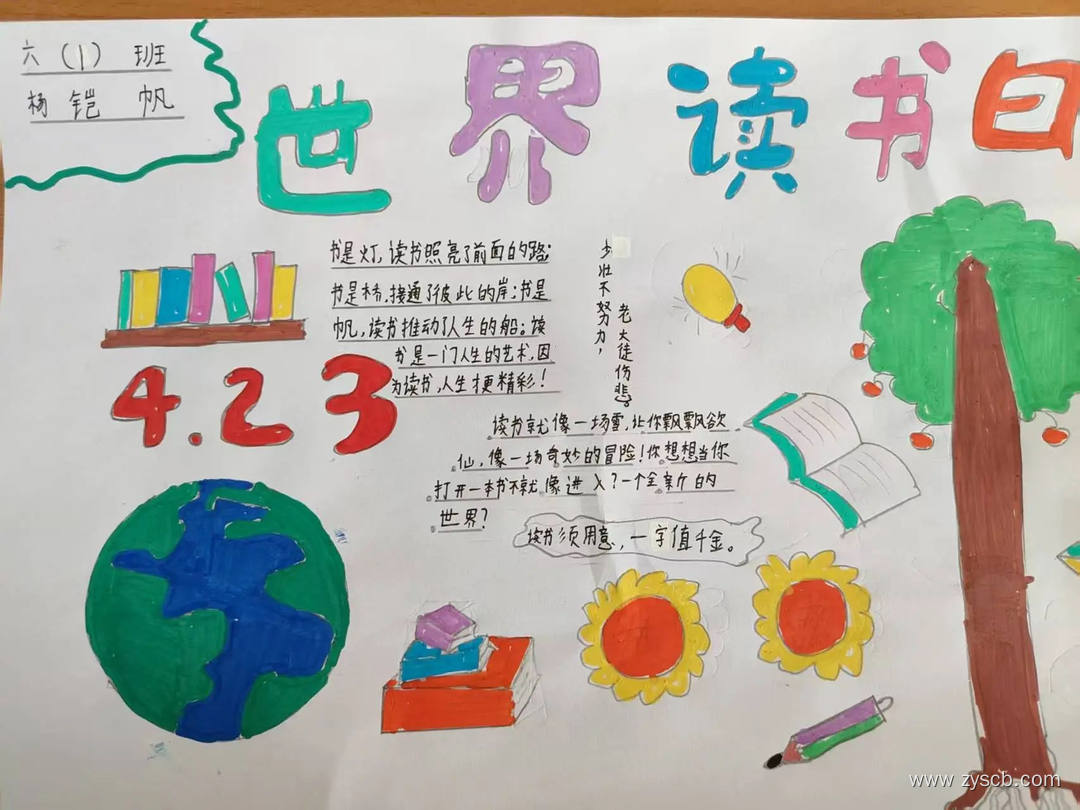 六（1）班
杨铠帆
世界读书日
书是灯,读书照亮了前面的路;
书是桥,接通了彼此的岸;书是
帆,读书推动了人生的船;读
书是一门人生的艺术,因
为读书,人生才更精彩!
少壮不努力,
老大徒伤悲。
4.23
读书就像一场雪,让你飘飘欲
仙,像一场奇妙的冒险!你想想当你
打开一本书不就像进入?一个全新的
世界?
读书须用意,一字值千金。
www.zyscb.com